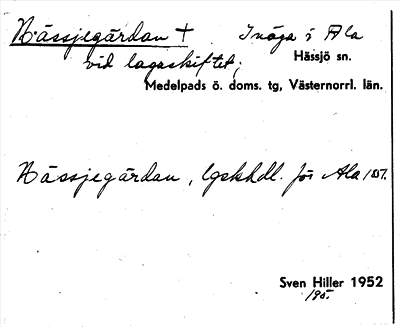 Nässjegårdan † Inäga i Ala
vid lagaskiftet; Hässjö sn.
Medelpads ö. doms. tg, Västernorrl. län.
Nässjegårdan, lgskhdl. för Ala
Sven Hiller 1952